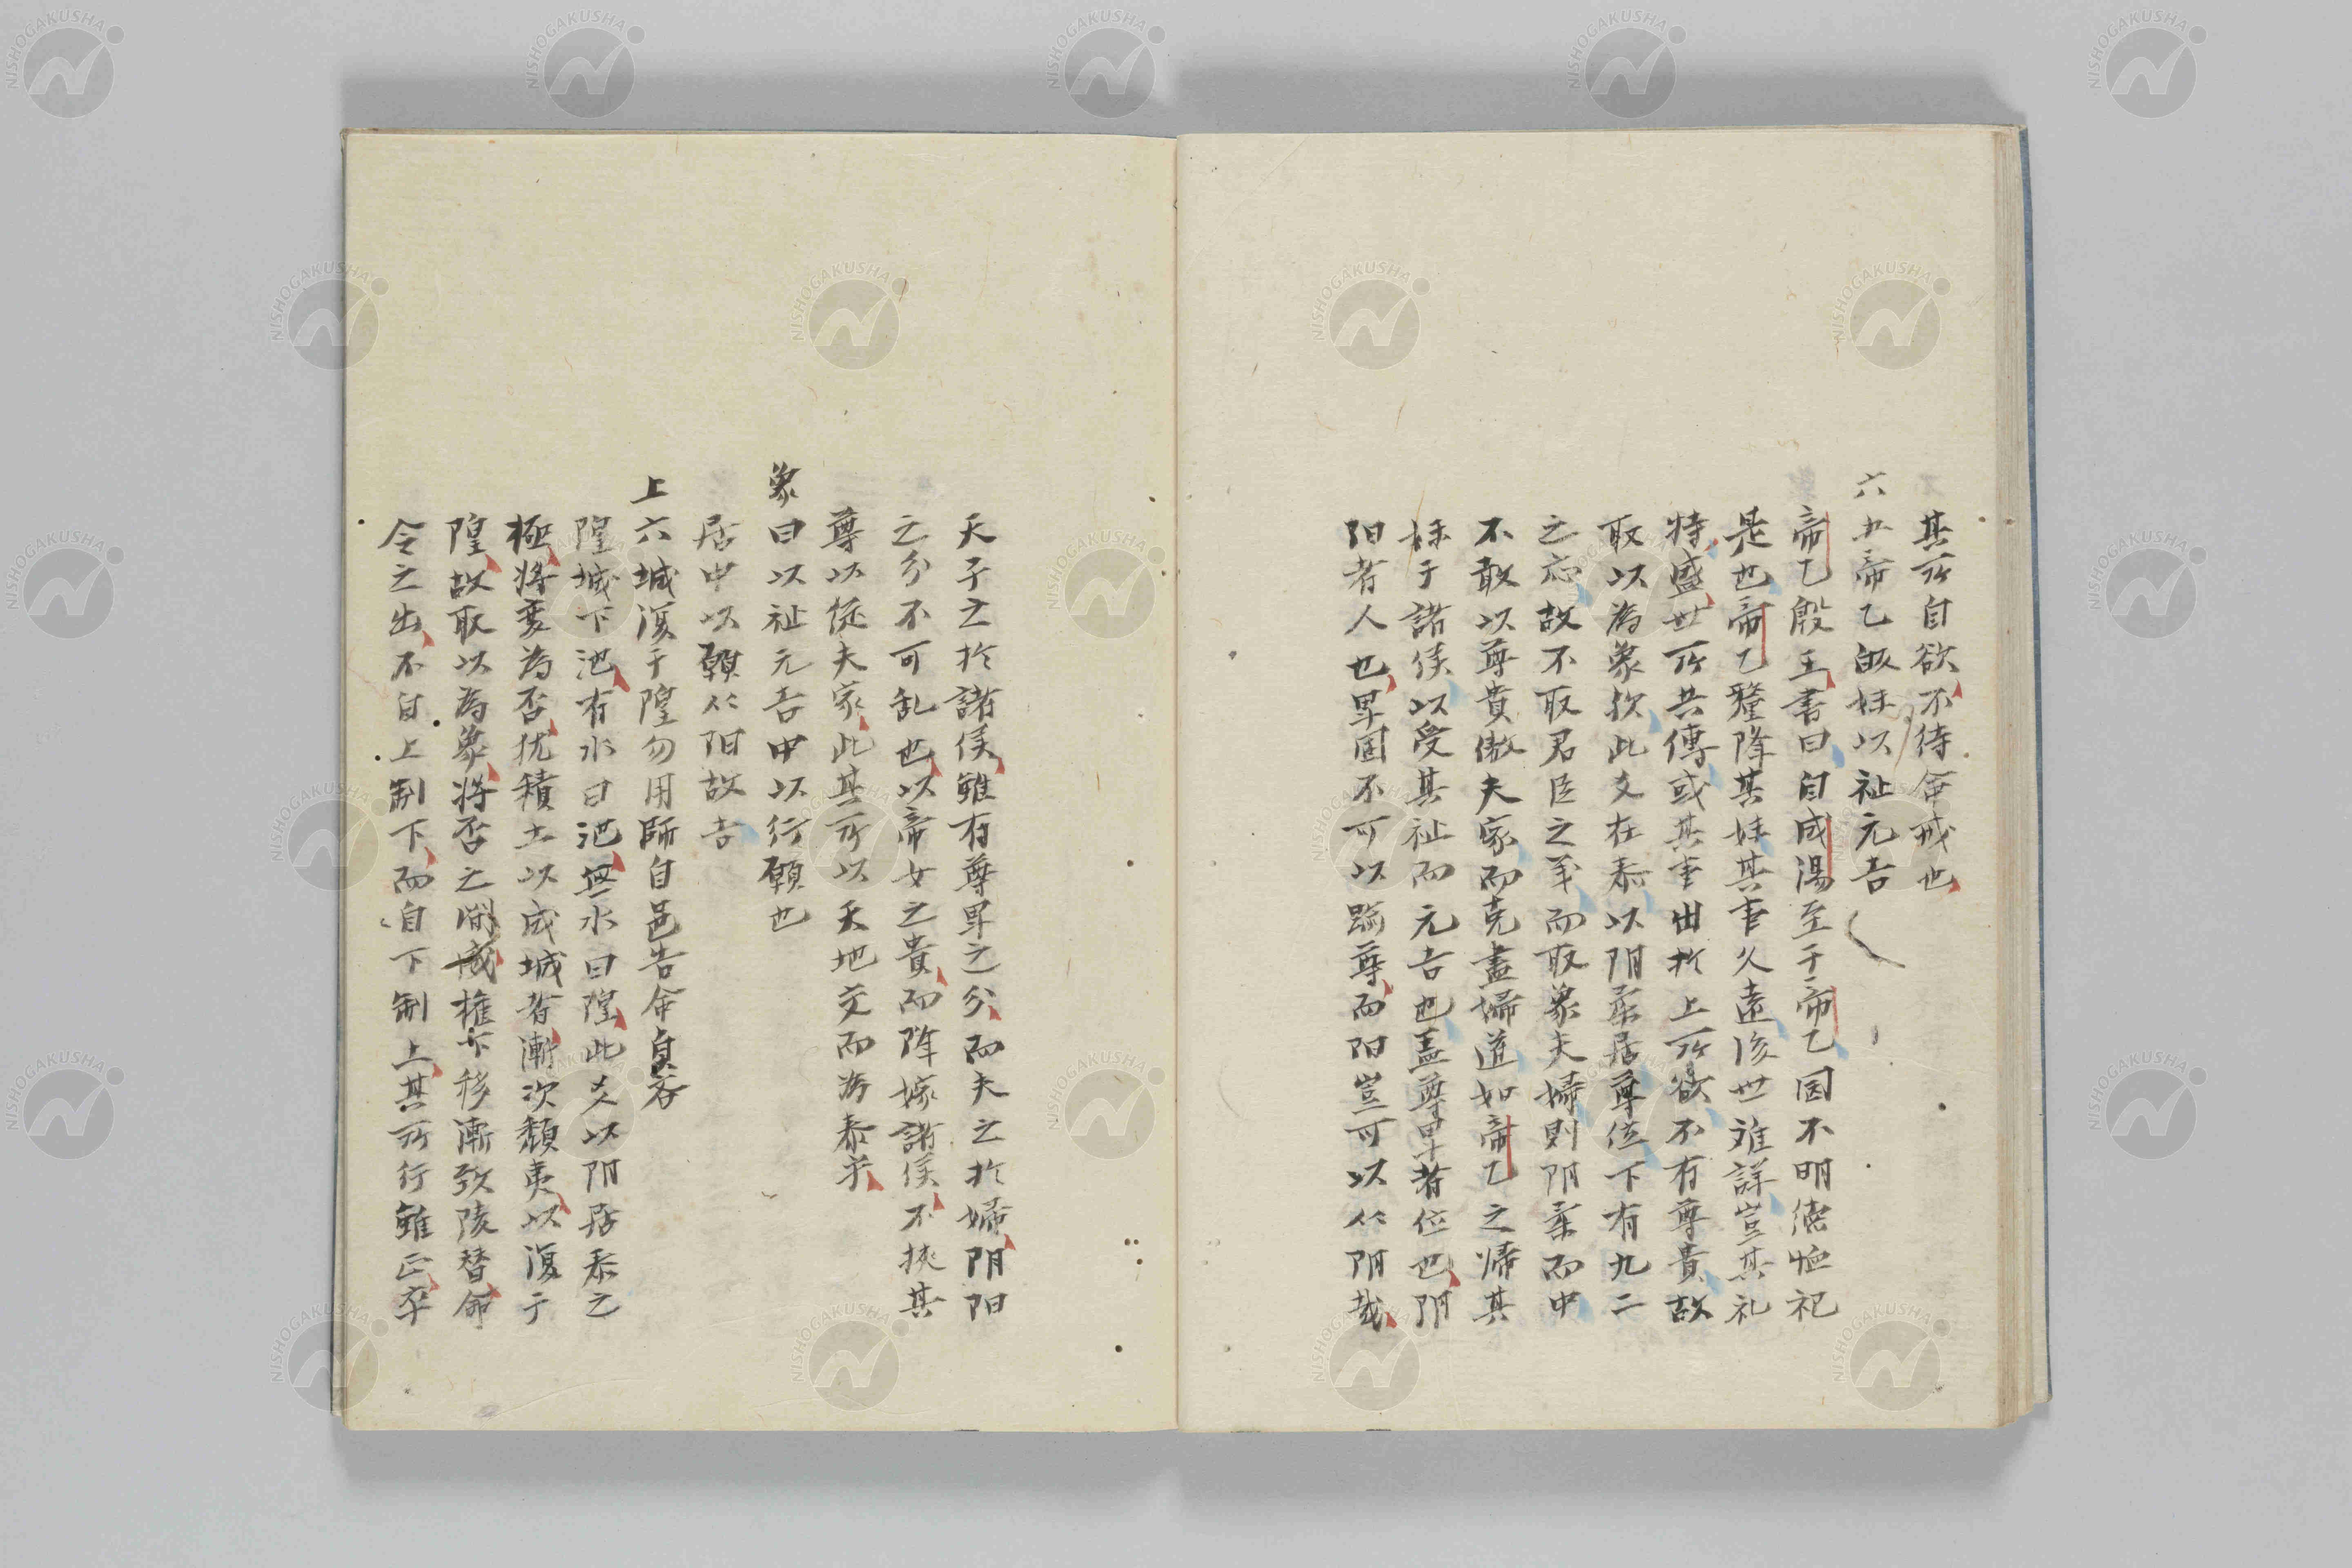 其所自欲不待命戒也
六五帝乙皈妹以祉元吉
帝乙殷王書曰自成湯至于帝乙罔不明德恤祀
是也帝乙釐降其妹其事久遠後世难詳豈其礼
特盛世所共傳或其事出於上所欲不有尊貴故
取以為象欤此爻在泰以阴柔居尊位下有九二
之应故不取君臣之義而取象夫婦則阴柔而中
不敢以尊貴傲夫家而克盡婦道如帝乙之帰其
妹于諸侯以受其祉而元吉也盖尊卑者位也阴
阳者人也卑固不可以踰尊而阳豈可以從阴哉
天子之於諸侯雖有尊卑之分而夫之於婦阴阳
之分不可乱也以帝女之貴而降嫁諸侯不挾其
尊以從夫家此其所以天地交而為泰乎
象曰以祉元吉中以行願也
居中以願從阳故吉
上六城復于隍勿用師自邑告命貞吝
隍城下池有水曰池無水曰隍此爻以阴居泰之
極将変為否犹積土以成城者漸次頹夷以復于
隍故取以為象将否之漸權下移漸致陵替命
令之出不自上制下而自下制上其所行雖正卒